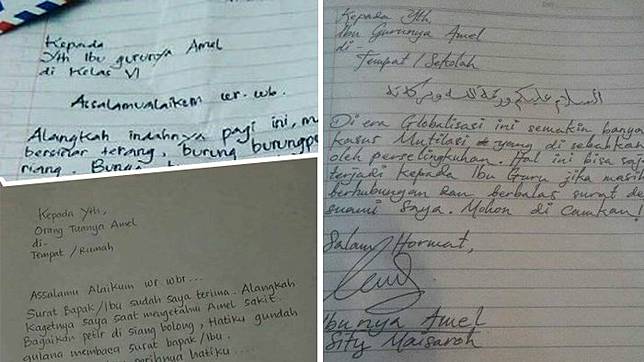 Kepada
Yth Ibu gurunya Amel
di Kelas VI
Assalamualaikum wr. wb.
Alangkah indahnya pagi ini, m
bersinar terang, burung burung
riang. Bunga
Kepada Yth,
Orang Tuanya Amel
di-
Tempat / Rumah
Assalamu Alaikum wr wbr...
Surat Bapak/Ibu sudah saya terima. Alangkah
Kagetnya saya saat mengetahui Amel sakit.
Bagaikan petir di siang bolong, Hatiku gundah
gulana membaca surat bapak/Ibu.
perihnya hatiku...
Kepada Yth.
Ibu Gurunya Amel
di-
Tempat / Sekolah
السلام عليكم ورحمة الله وبركاته
Di era Globalisasi ini semakin banya
kasus Mutilasi yang di sebabkan
oleh perselingkuhan. Hal ini bisa sa
terjadi kepada Ibu Guru jika masih
berhubungan dan berbalas surat de
suami saya. Mohon di Camkan!
Salam Hormat,
Ibunya Amel
Sity Maisaroh